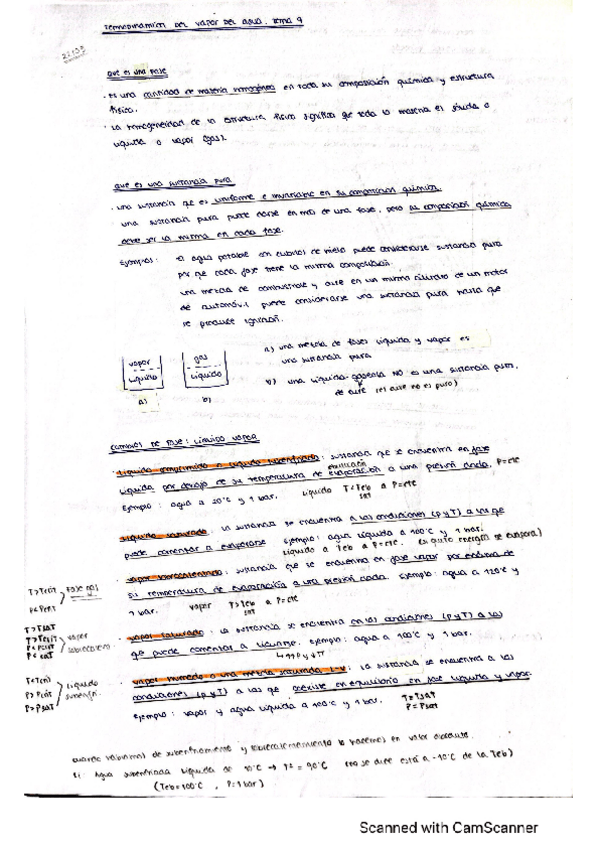 Termodinámica del vapor del agua. Tema 9
que es una fase
· es una cantidad de materia homogénea en toda su composición química y estructura
física.
· La homogeneidad de la estructura física significa que toda la materia es sólida o
líquida o vapor (gas).
que es una sustancia pura
· una sustancia que es uniforme e invariable en su composición química.
una sustancia pura puede darse en más de una fase, pero su composición química
debe ser la misma en cada fase.
Ejemplos: el agua potable con cubitos de hielo puede considerarse sustancia pura
por que cada fase tiene la misma composición.
una mezcla de combustible y aire en un mismo cilindro de un motor
de automóvil puede considerarse una sustancia pura hasta que
se produce ignición.
vapor
líquido
a)
gas
líquido
b)
a) una mezcla de fases líquida y vapor es
una sustancia pura
b) una líquida-gaseosa NO es una sustancia pura.
de aire (el aire no es puro)
Cambios de fase: líquido vapor
· líquido comprimido o líquido subenfriado: sustancia que se encuentra en fase
líquida por debajo de su temperatura de evaporación a una presión dada. P=cte
ebullición
Ejemplo: agua a 20°C y 1 bar. líquido T<Teb a P=cte
sat
· líquido saturado: la sustancia se encuentra a las condiciones (p y T) a las que
puede comenzar a evaporarse Ejemplo: agua líquida a 100°C y 1 bar.
líquido a Teb a P=cte. (si quito energía se evapora.)
· vapor sobrecalentado: sustancia que se encuentra en fase vapor por encima de
su temperatura de evaporación a una presión dada. Ejemplo: agua a 120°C y
1 bar. vapor T>Teb a P=cte
sat
· vapor saturado: la sustancia se encuentra en las condiciones (p y T) a las
que puede comenzar a licuarse. ejemplo: agua a 100°C y 1 bar.
· vapor húmedo o una mezcla saturada L-V: la sustancia se encuentra a las
condiciones (p y T) a las que coexiste en equilibrio en fase líquida y vapor.
Ejemplo: vapor y agua líquida a 100°C y 1 bar. T=Tsat
P=Psat
T>Tcrit
P<Pcrit
Fase gas
T>Tsat
T>Tcrit
P<Pcrit
P<sat
vapor
sobrecalen
T<Tcrit
P>Pcrit
P>Psat
líquido
subenfri.
cuando hablamos de subenfriamiento y sobrecalentamiento lo hacemos en valor absoluto.
Ej: Agua subenfriada líquida de 10°C → Tª = 90°C (no se dice está a -10°C de la Teb)
(Teb=100°C, P=1bar)
Scanned with CamScanner